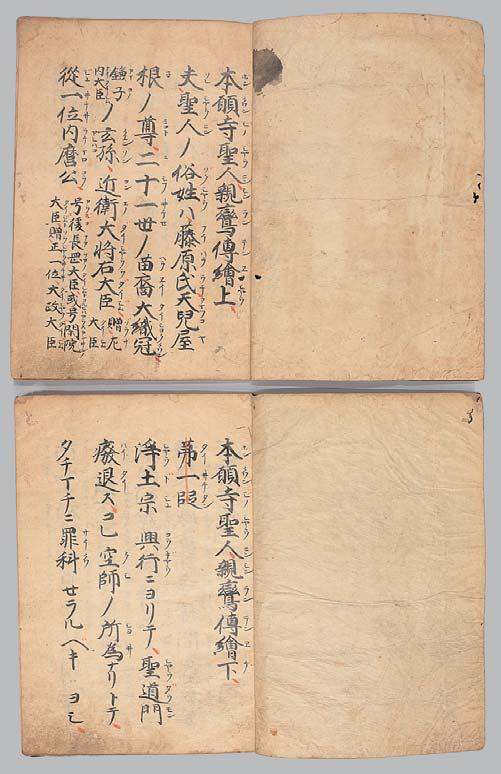 本願寺聖人親鸞傳繪上
夫聖人ノ俗姓ハ藤原氏天兒屋
根ノ尊二十一世ノ苗裔大織冠
鎌子内大臣ノ玄孫近衛大將右大臣贈左大臣
從一位内麿公号後長岡大臣或号閑院大臣贈正一位太政大臣
本願寺聖人親鸞傳繪下
第一段
淨土宗興行ニヨリテ聖道門
癈退スコレ空師ノ所為ナリトテ
タチマチニ罪科セラルヘキヨシ